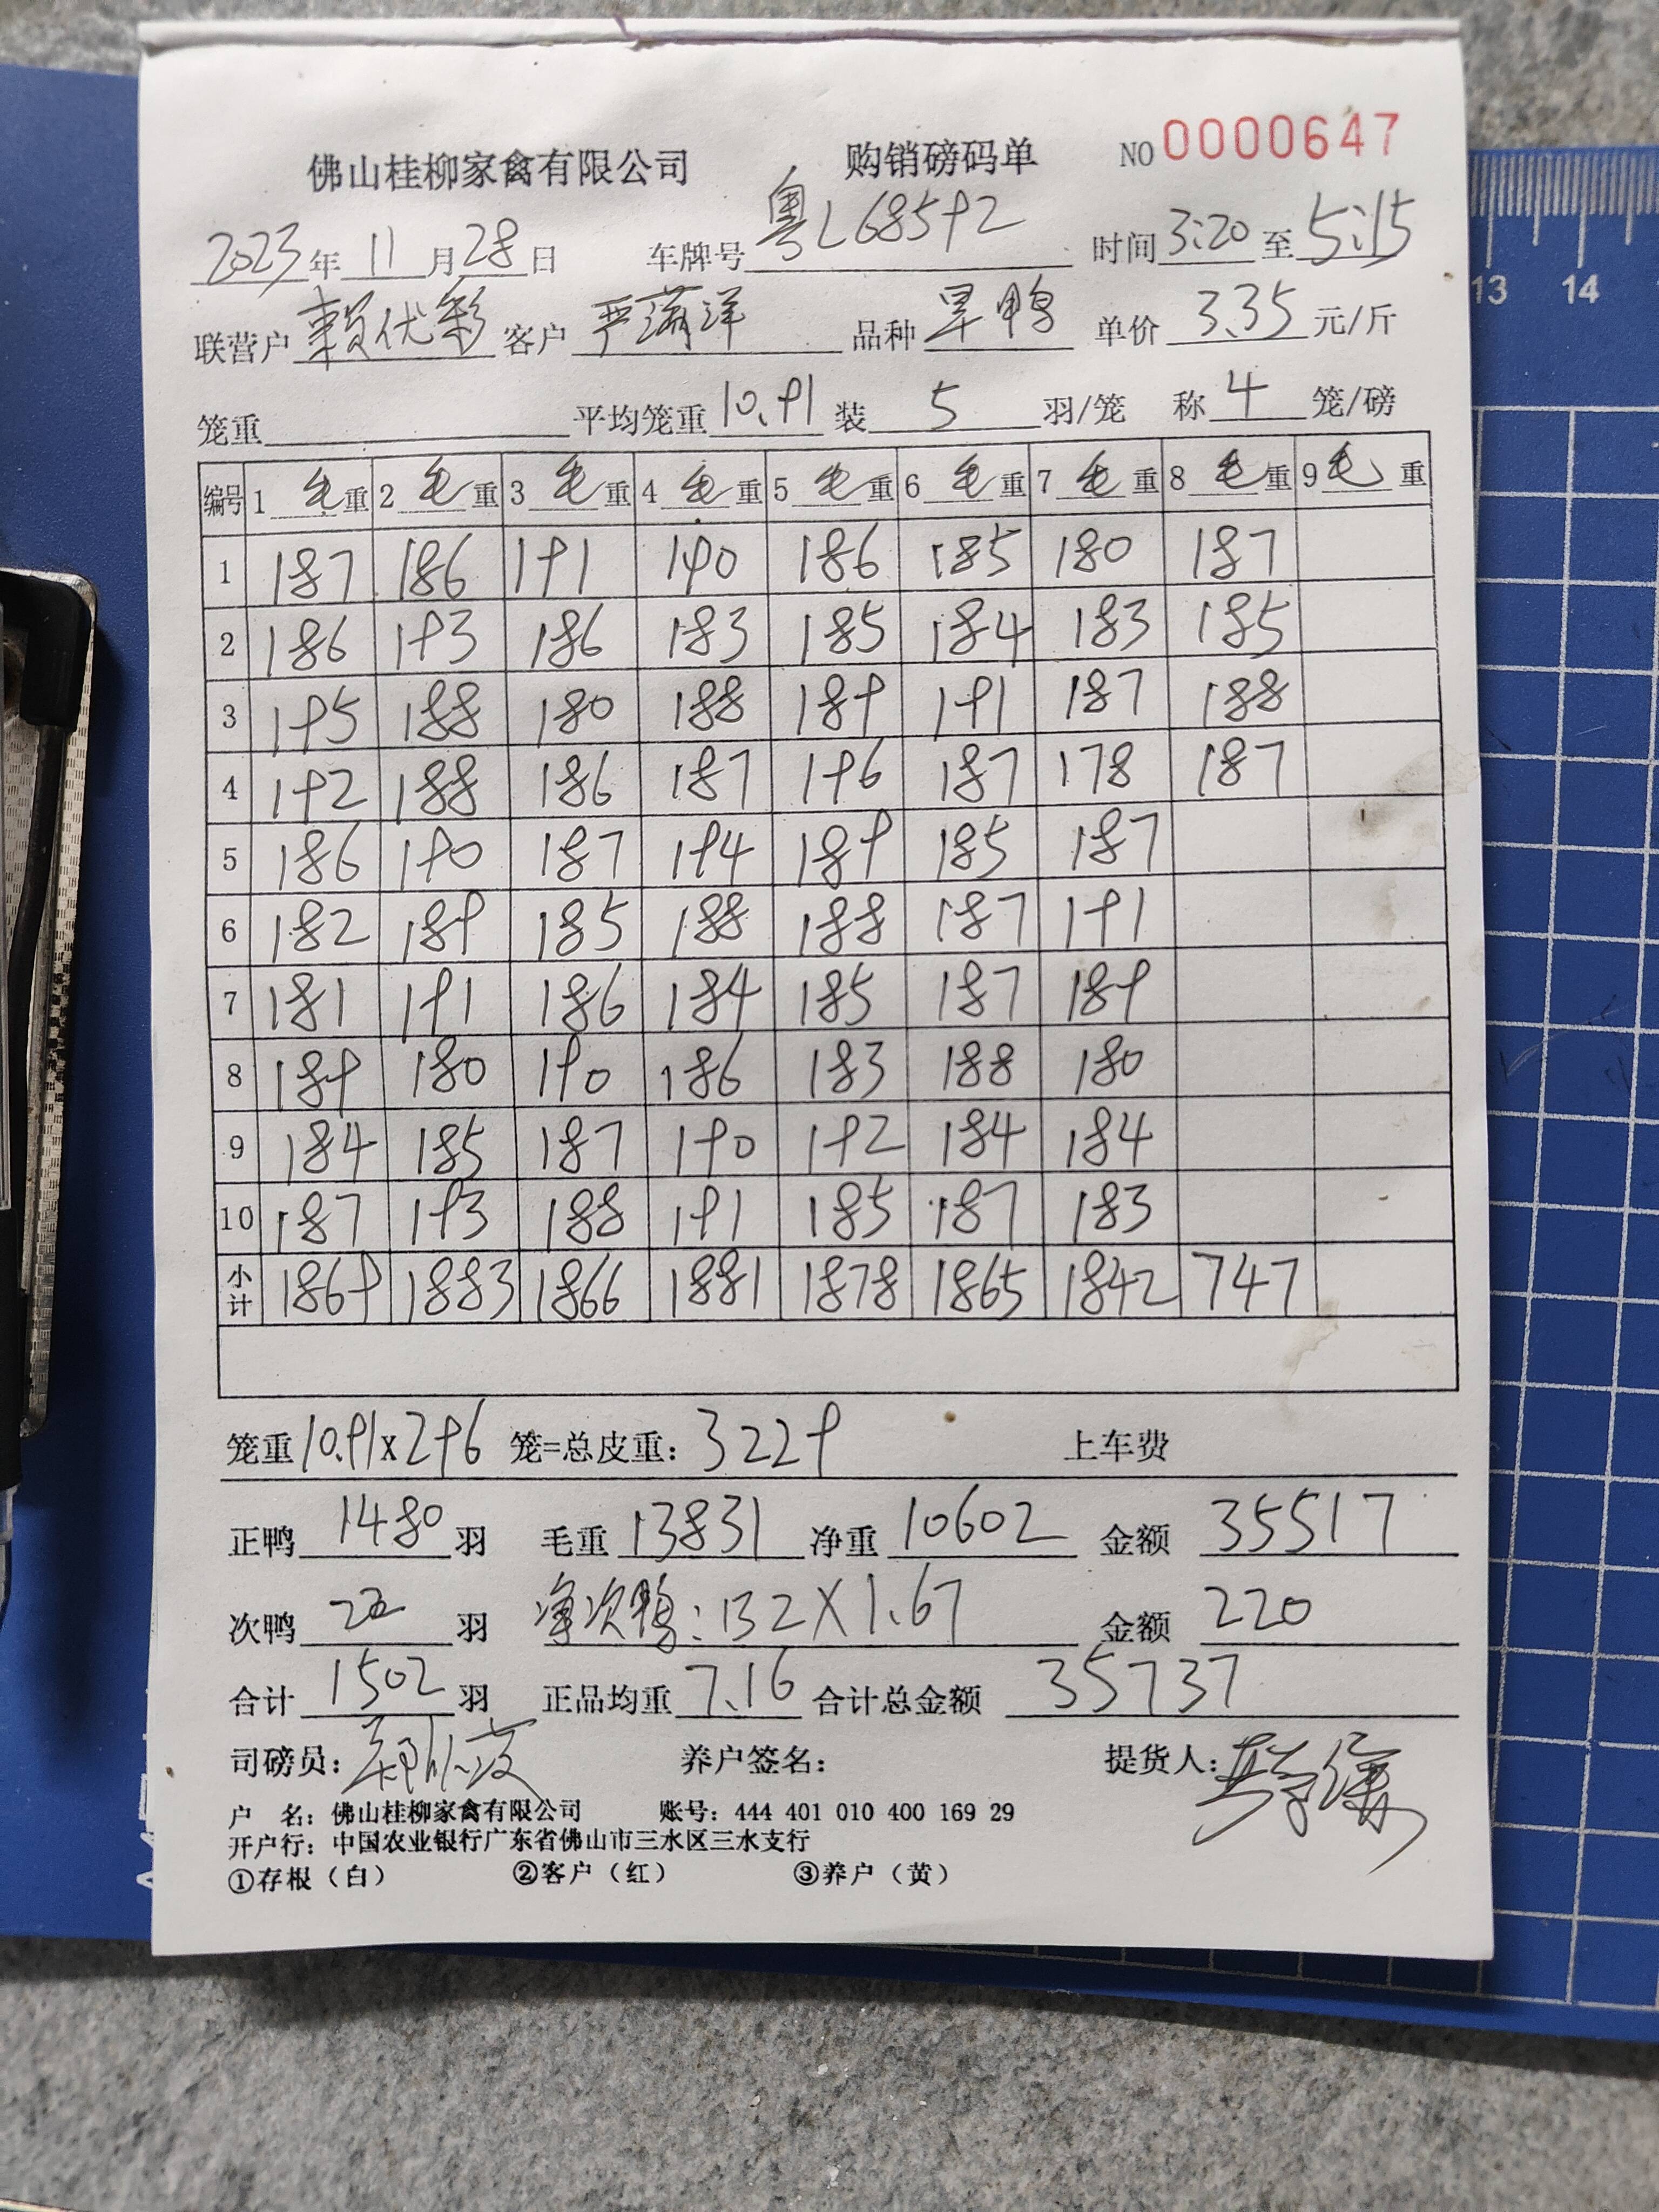 佛山桂柳家禽有限公司 购销磅码单 NO 0000647
2023年 11 月 28 日 车牌号 粤L68592 时间 3:20 至 5:15
联营户 赖优彩 客户 严满洋 品种 旱鸭 单价 3.35 元/斤
笼重 平均笼重 10.91 装 5 羽/笼 称 4 笼/磅
编号 1 毛重 2 毛重 3 毛重 4 毛重 5 毛重 6 毛重 7 毛重 8 毛重 9 毛重
1 187 186 191 190 186 185 180 187
2 186 193 186 183 185 184 183 185
3 195 188 180 188 189 191 187 188
4 192 188 186 187 196 187 178 187
5 186 190 187 194 189 185 187
6 182 189 185 188 188 187 191
7 181 191 186 184 185 187 189
8 189 180 190 186 183 188 180
9 184 185 187 190 192 184 184
10 187 193 188 191 185 187 183
小计 1869 1883 1866 1881 1878 1865 1842 747
笼重 10.91x296 笼=总皮重: 3229 上车费
正鸭 1480 羽 毛重 13831 净重 10602 金额 35517
次鸭 22 羽 净次鸭: 132X1.67 金额 220
合计 1502 羽 正品均重 7.16 合计总金额 35737
司磅员: 养户签名: 提货人:
户 名: 佛山桂柳家禽有限公司 账号: 444 401 010 400 169 29
开户行: 中国农业银行广东省佛山市三水区三水支行
①存根（白） ②客户（红） ③养户（黄）
13 14